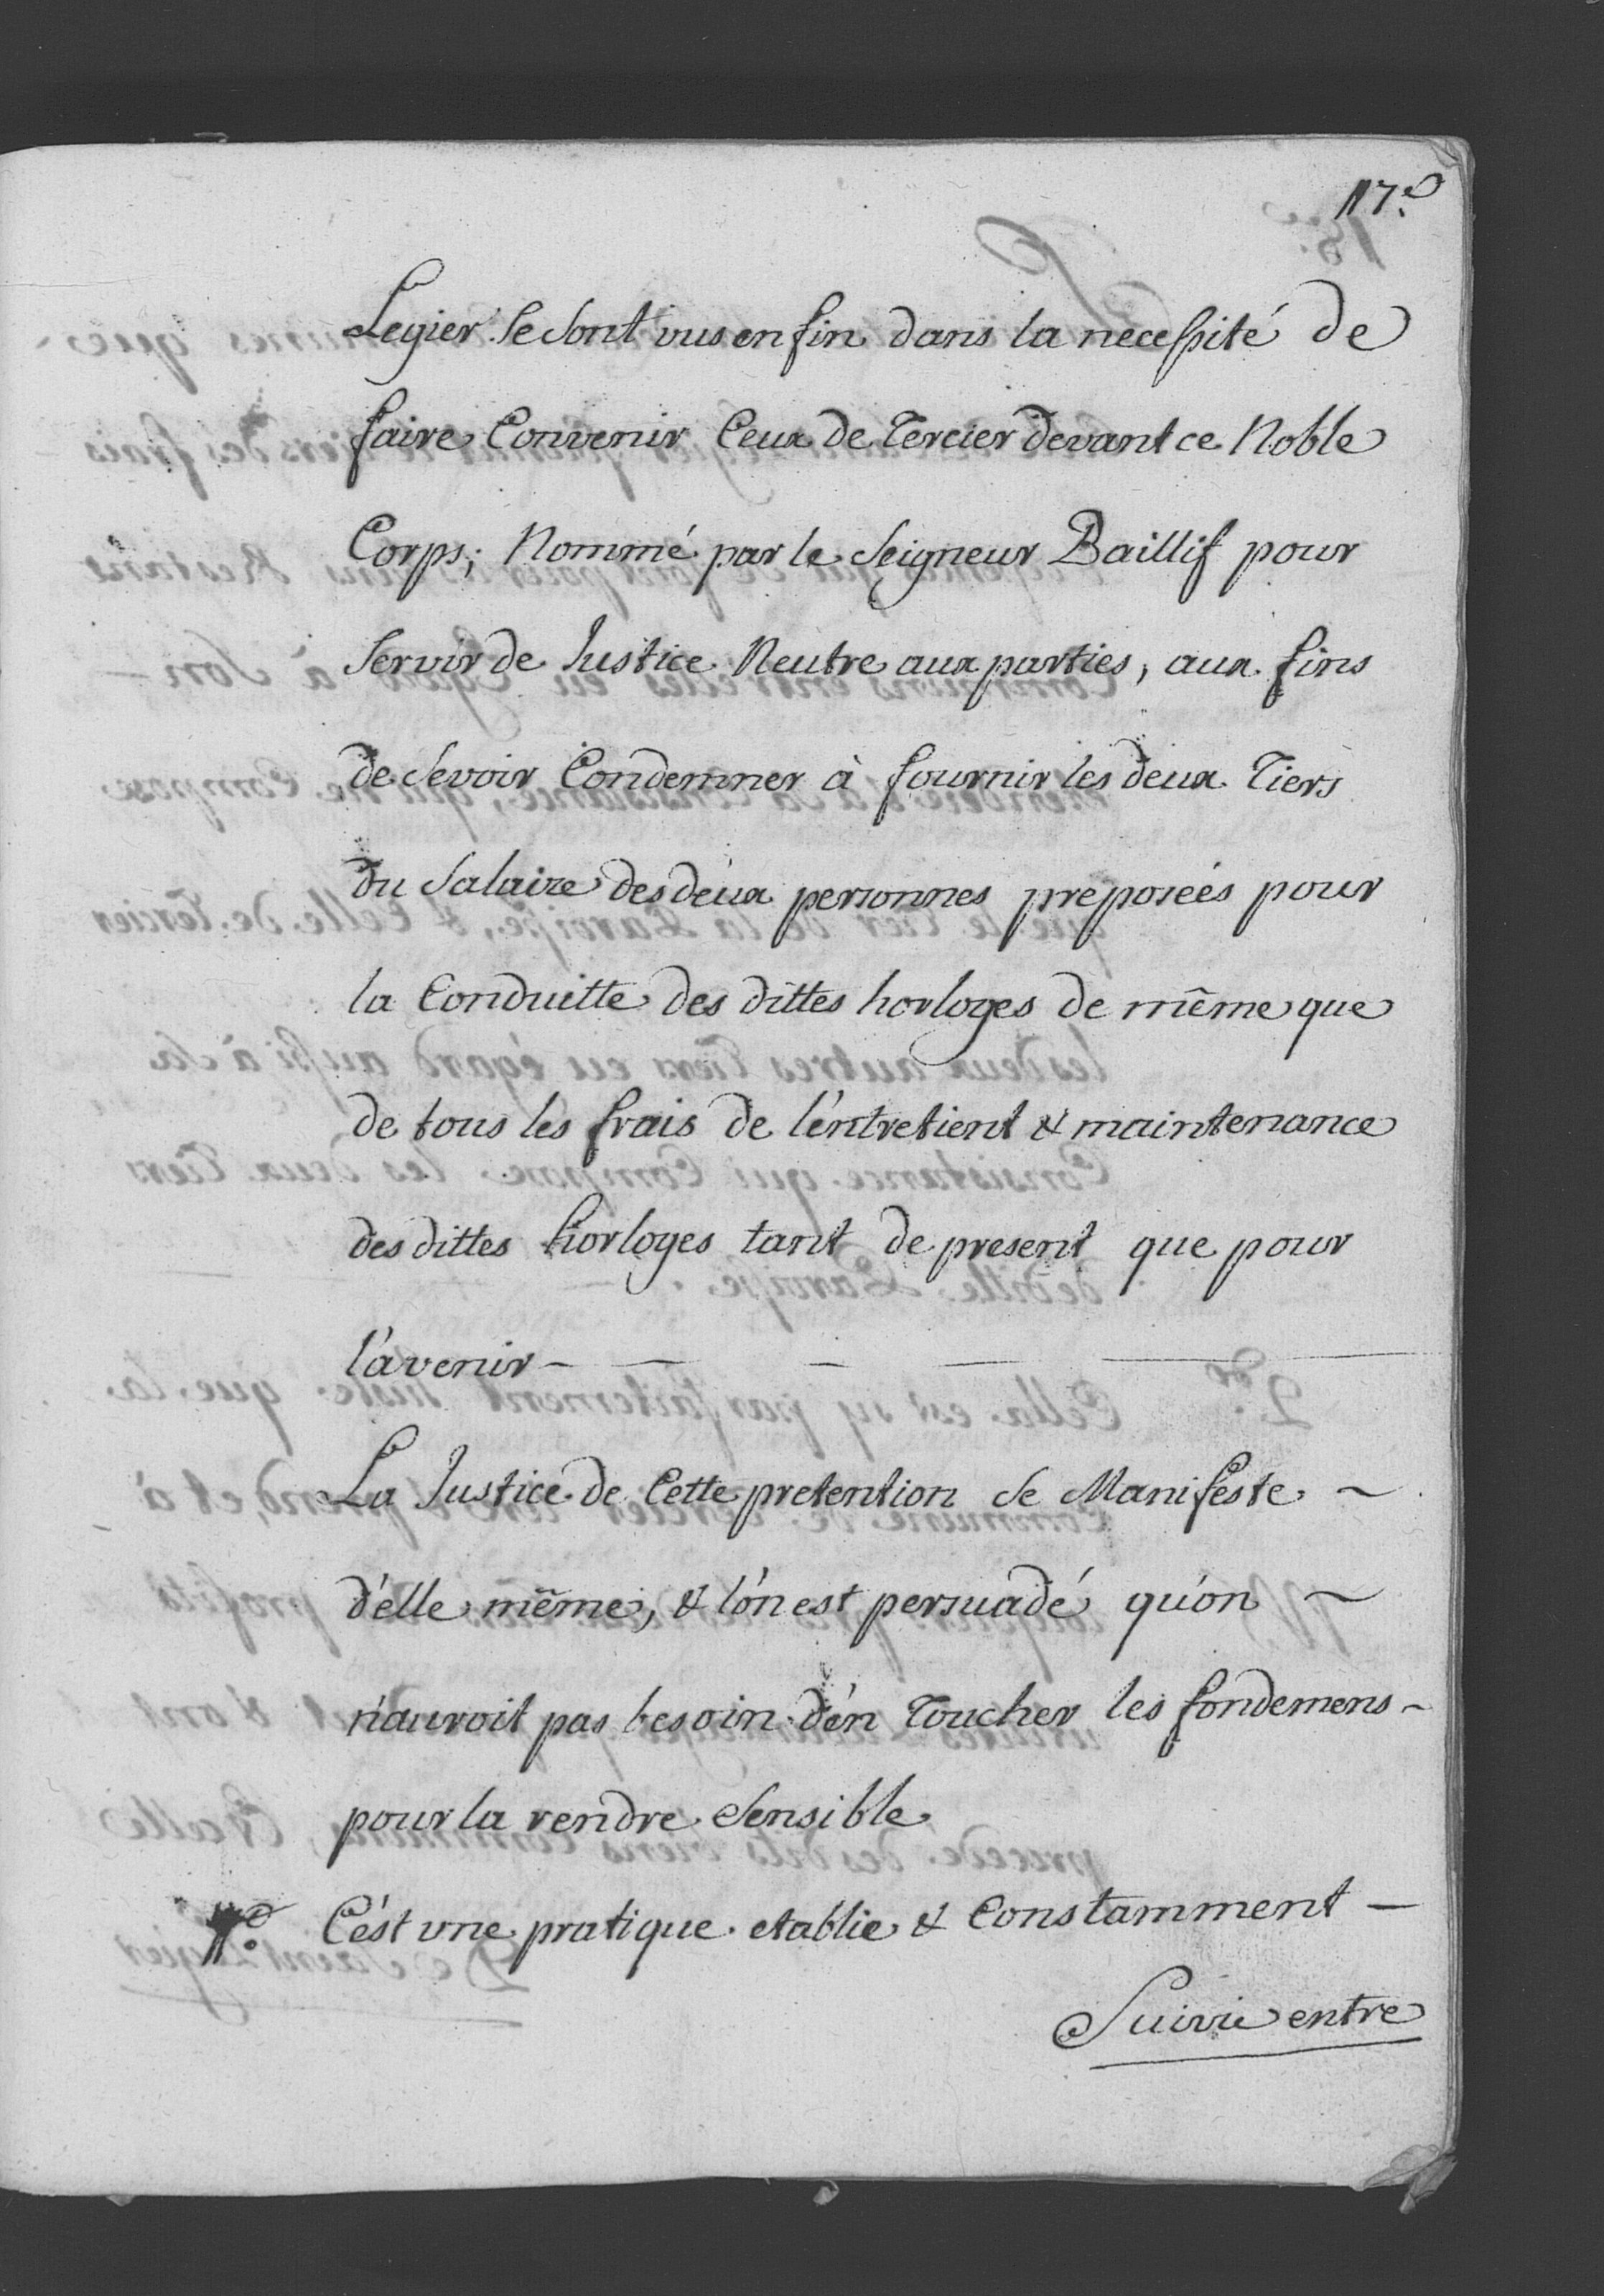 17.e
Legier. Se sont vus enfin dans la necessité de
faire Convenir Ceux de Tercier devant ce Noble
Corps; Nommé par le Seigneur Baillif pour
Servir de Justice Neutre aux parties, aux fins
de Se voir Condemner à fournir les deux Tiers
du Salaire des deux personnes preposées pour
la Conduitte des dittes horloges de même que
de tous les frais de l'éntretient & maintenance
des dittes horloges tant de present que pour
l'avenir - — - — —
La Justice de Cette pretention Se Manifeste ~
d'élle même, & l'ón est persuadé qu'on ~
n'auroit pas besoin d'én Toucher les fondemens -
pour la rendre Sensible
1.o C'ést une pratique etablie & Constamment —
Suivie entre